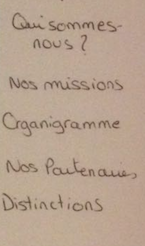 Qui sommes-
nous ?
Nos missions
Organigramme
Nos Partenaires
Distinctions